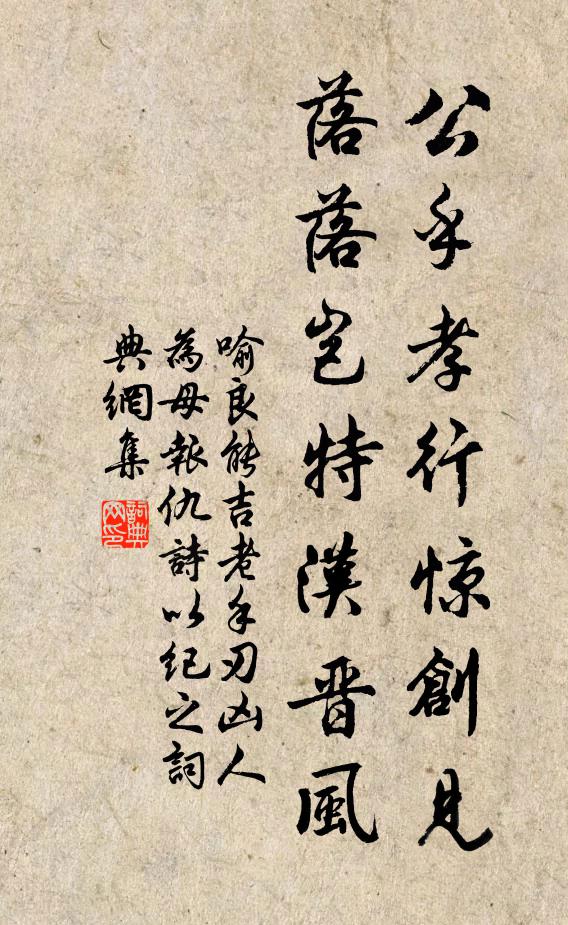 公乎孝行惊創見
落落豈特漢晋風
喻良能吉老手刃凶人
為母報仇詩以紀之詞
典網集
詞典
网印